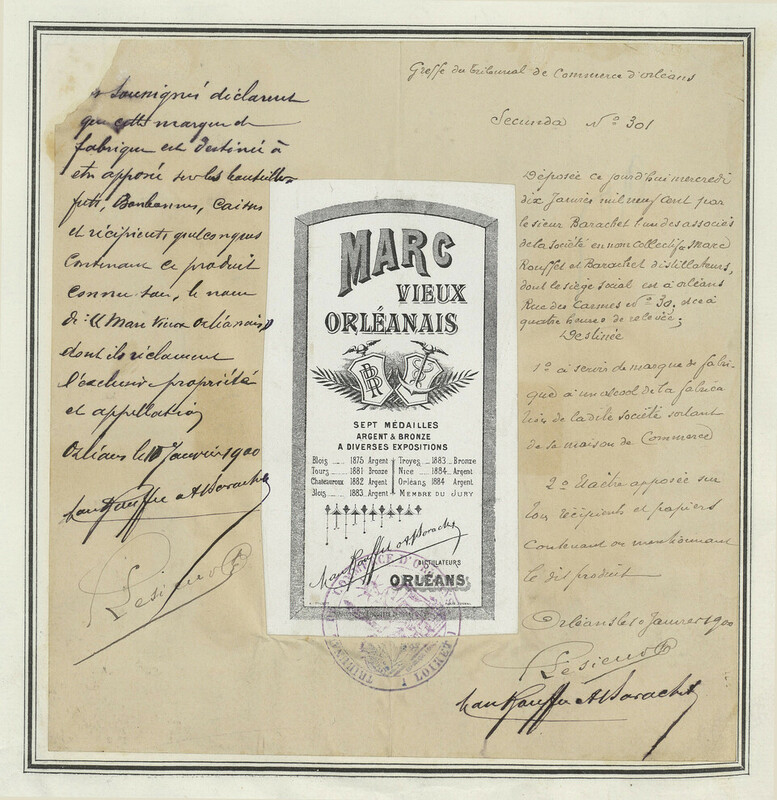 soussignés déclarent
que cette marque de
fabrique est destinée à
etre apposée sur les bouteilles
futs, Bonbonnes, Caisses
et récipients quelconques
Contenant ce produit
connu sou, le nom
de: "Marc Vieux Orléanais"
dont ils réclament
l'exclusive propriété
et appellation
Orléans le 10 Janvier 1900
Marc Rouffet et ABarachet
Lesieur
MARC
VIEUX
ORLÉANAIS
SEPT MÉDAILLES
ARGENT & BRONZE
A DIVERSES EXPOSITIONS
Blois 1875 Argent Troyes 1883 Bronze
Tours 1881 Bronze Nice 1884 Argent
Chateauroux 1882 Argent Orléans 1884 Argent
Blois 1883 Argent MEMBRE DU JURY
Marc Rouffet et ABarachet
DISTILLATEURS
ORLÉANS
TRIBUNAL DE COMMERCE D'ORLÉANS
LOIRET
Greffe du tribunal de Commerce d'orléans
Secunda N° 301
Déposée ce jourd'hui mercredi
dix Janvier mil neuf cent par
le sieur Barachet l'un des associés
de la Société en nom collectif Marc
Rouffet et Barachet distillateurs,
dont le siège social est à orléans
Rue des Carmes N° 30, à
quatre heures de relevée;
Destinée
1° à servir de marque de fabri-
que à un alcool de la fabrica
tion de la dite société sortant
de sa maison de Commerce
2° à être apposée sur
tous récipients et papiers
contenant ou mentionnant
le dit produit
Orléans le 10 Janvier 1900
Lesieur
Marc Rouffet et ABarachet